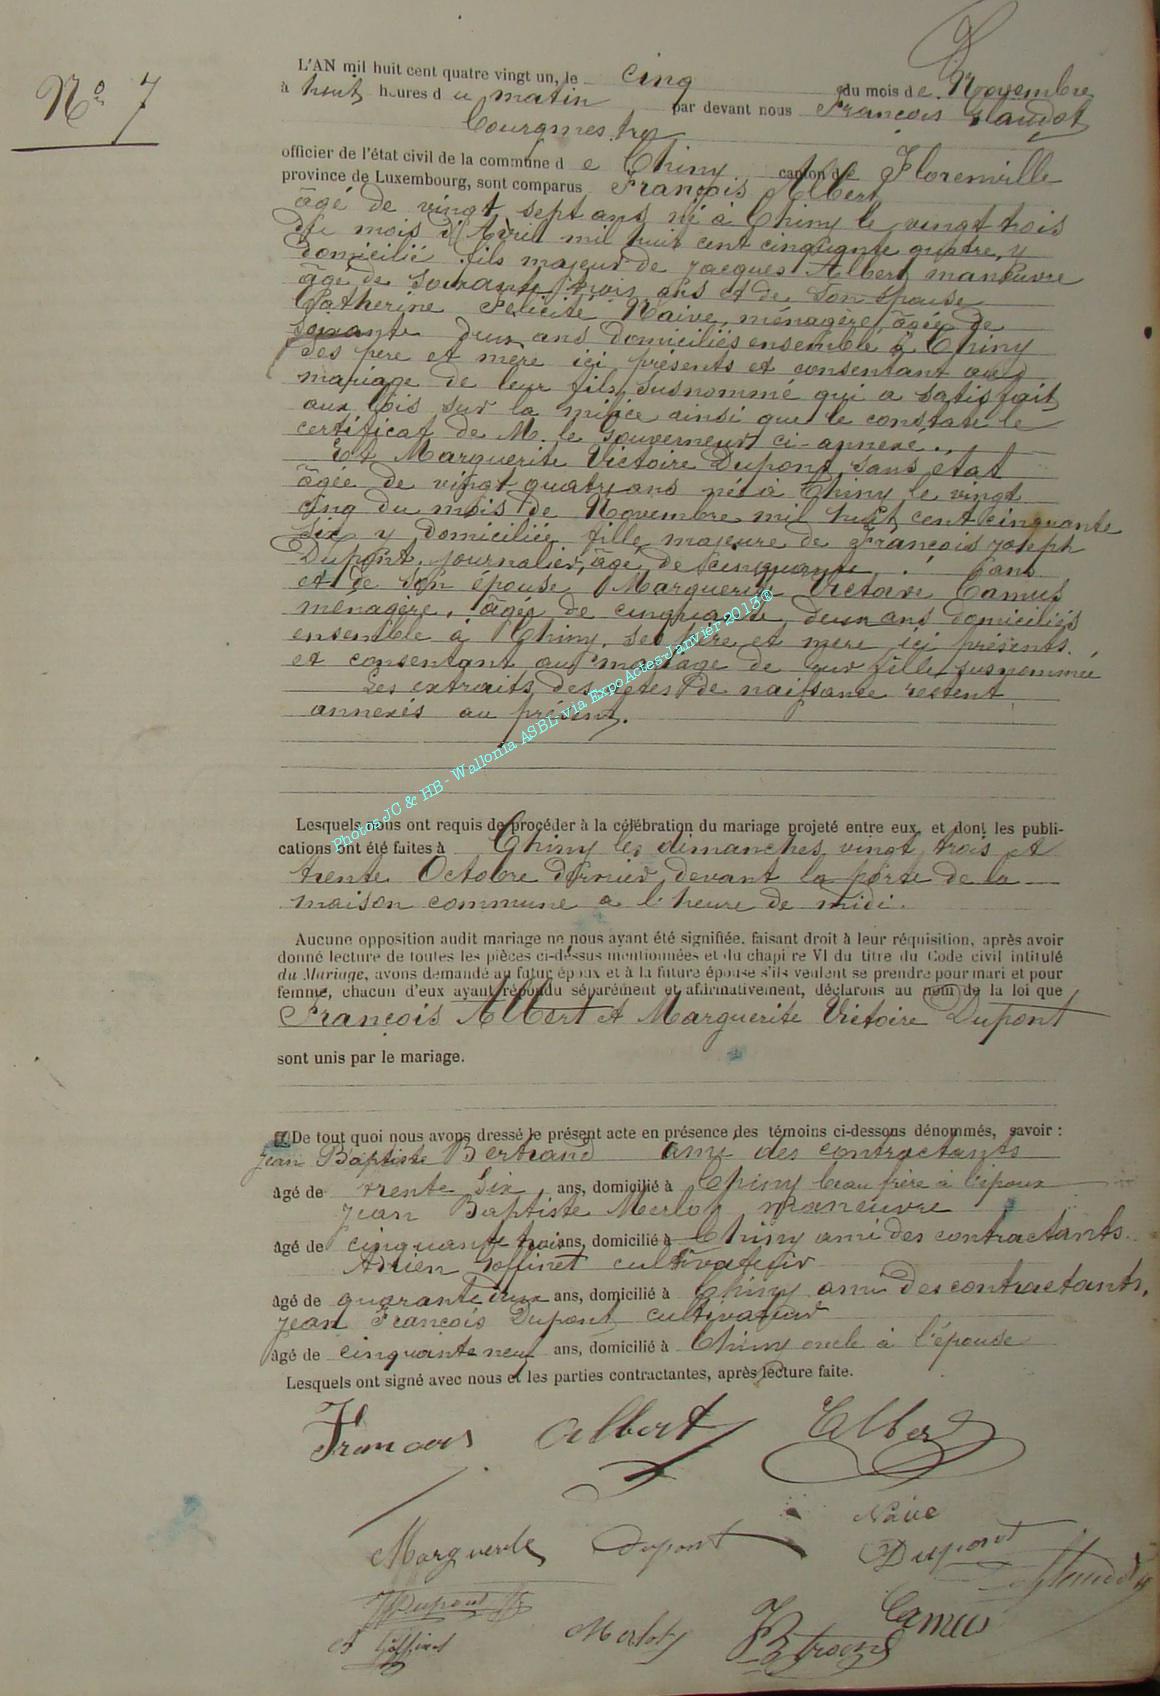 N° 7
L'AN mil huit cent quatre vingt un, le cinq du mois de Novembre
à huit heures du matin par devant nous François
Bourgmestre
officier de l'état civil de la commune de Chiny canton de Florenville
province de Luxembourg, sont comparus François Albert
âgé de vingt sept ans né à Chiny le vingt trois
du mois d'Avril mil huit cent cinquante quatre, y
domicilié fils majeur de Jacques Albert manœuvre
âgé de soixante trois ans et de son épouse
Catherine Félicité Naive, ménagère, âgée de
soixante deux ans domiciliés ensemble à Chiny
ses père et mère ici présents et consentant au
mariage de leur fils susnommé qui a satisfait
aux lois sur la milice ainsi que le constate le
certificat de M. le Gouverneur ci-annexé.
Et Marguerite Victoire Dupont, sans état
âgée de vingt quatre ans née à Chiny le vingt
cinq du mois de Novembre mil huit cent cinquante
six y domiciliée fille majeure de François Joseph
Dupont, journalier, âgé de cinquante ans
et de son épouse Marguerite Victoire Camus
ménagère, âgée de cinquante deux ans domiciliés
ensemble à Chiny, ses père et mère ici présents
et consentant au mariage de leur fille susnommée
Les extraits des actes de naissance restent
annexés au présent.
Photos JC & HB - Wallonia ASBL via Expo Actes Janvier 2013®
Lesquels nous ont requis de procéder à la célébration du mariage projeté entre eux, et dont les publi-
cations ont été faites à Chiny les dimanches vingt trois et
trente Octobre dernier devant la porte de la
maison commune à l'heure de midi.
Aucune opposition audit mariage ne nous ayant été signifiée, faisant droit à leur réquisition, après avoir
donné lecture de toutes les pièces ci-dessus mentionnées et du chapitre VI du titre du Code civil intitulé
du Mariage, avons demandé au futur époux et à la future épouse s'ils veulent se prendre pour mari et pour
femme, chacun d'eux ayant répondu séparément et affirmativement, déclarons au nom de la loi que
François Albert et Marguerite Victoire Dupont
sont unis par le mariage.
De tout quoi nous avons dressé le présent acte en présence des témoins ci-dessous dénommés, savoir :
Jean Baptiste Bertrand ami des contractants
âgé de trente six ans, domicilié à Chiny beau frère à l'époux
Jean Baptiste Merlot manœuvre
âgé de cinquante trois ans, domicilié à Chiny ami des contractants
Adrien Goffinet cultivateur
âgé de quarante deux ans, domicilié à Chiny ami des contractants,
Jean François Dupont cultivateur
âgé de cinquante neuf ans, domicilié à Chiny oncle à l'épouse
Lesquels ont signé avec nous et les parties contractantes, après lecture faite.
François Albert Albert
Naive
Marguerite Dupont Dupont
Dupont
Camus
Goffinet Merlot